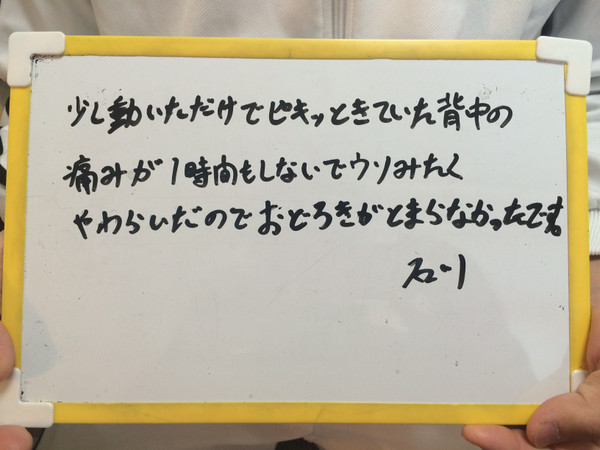 少し動いただけでピキッときていた背中の
痛みが1時間もしないでウソみたく
やわらいだのでおどろきがとまらなかったです。
石川